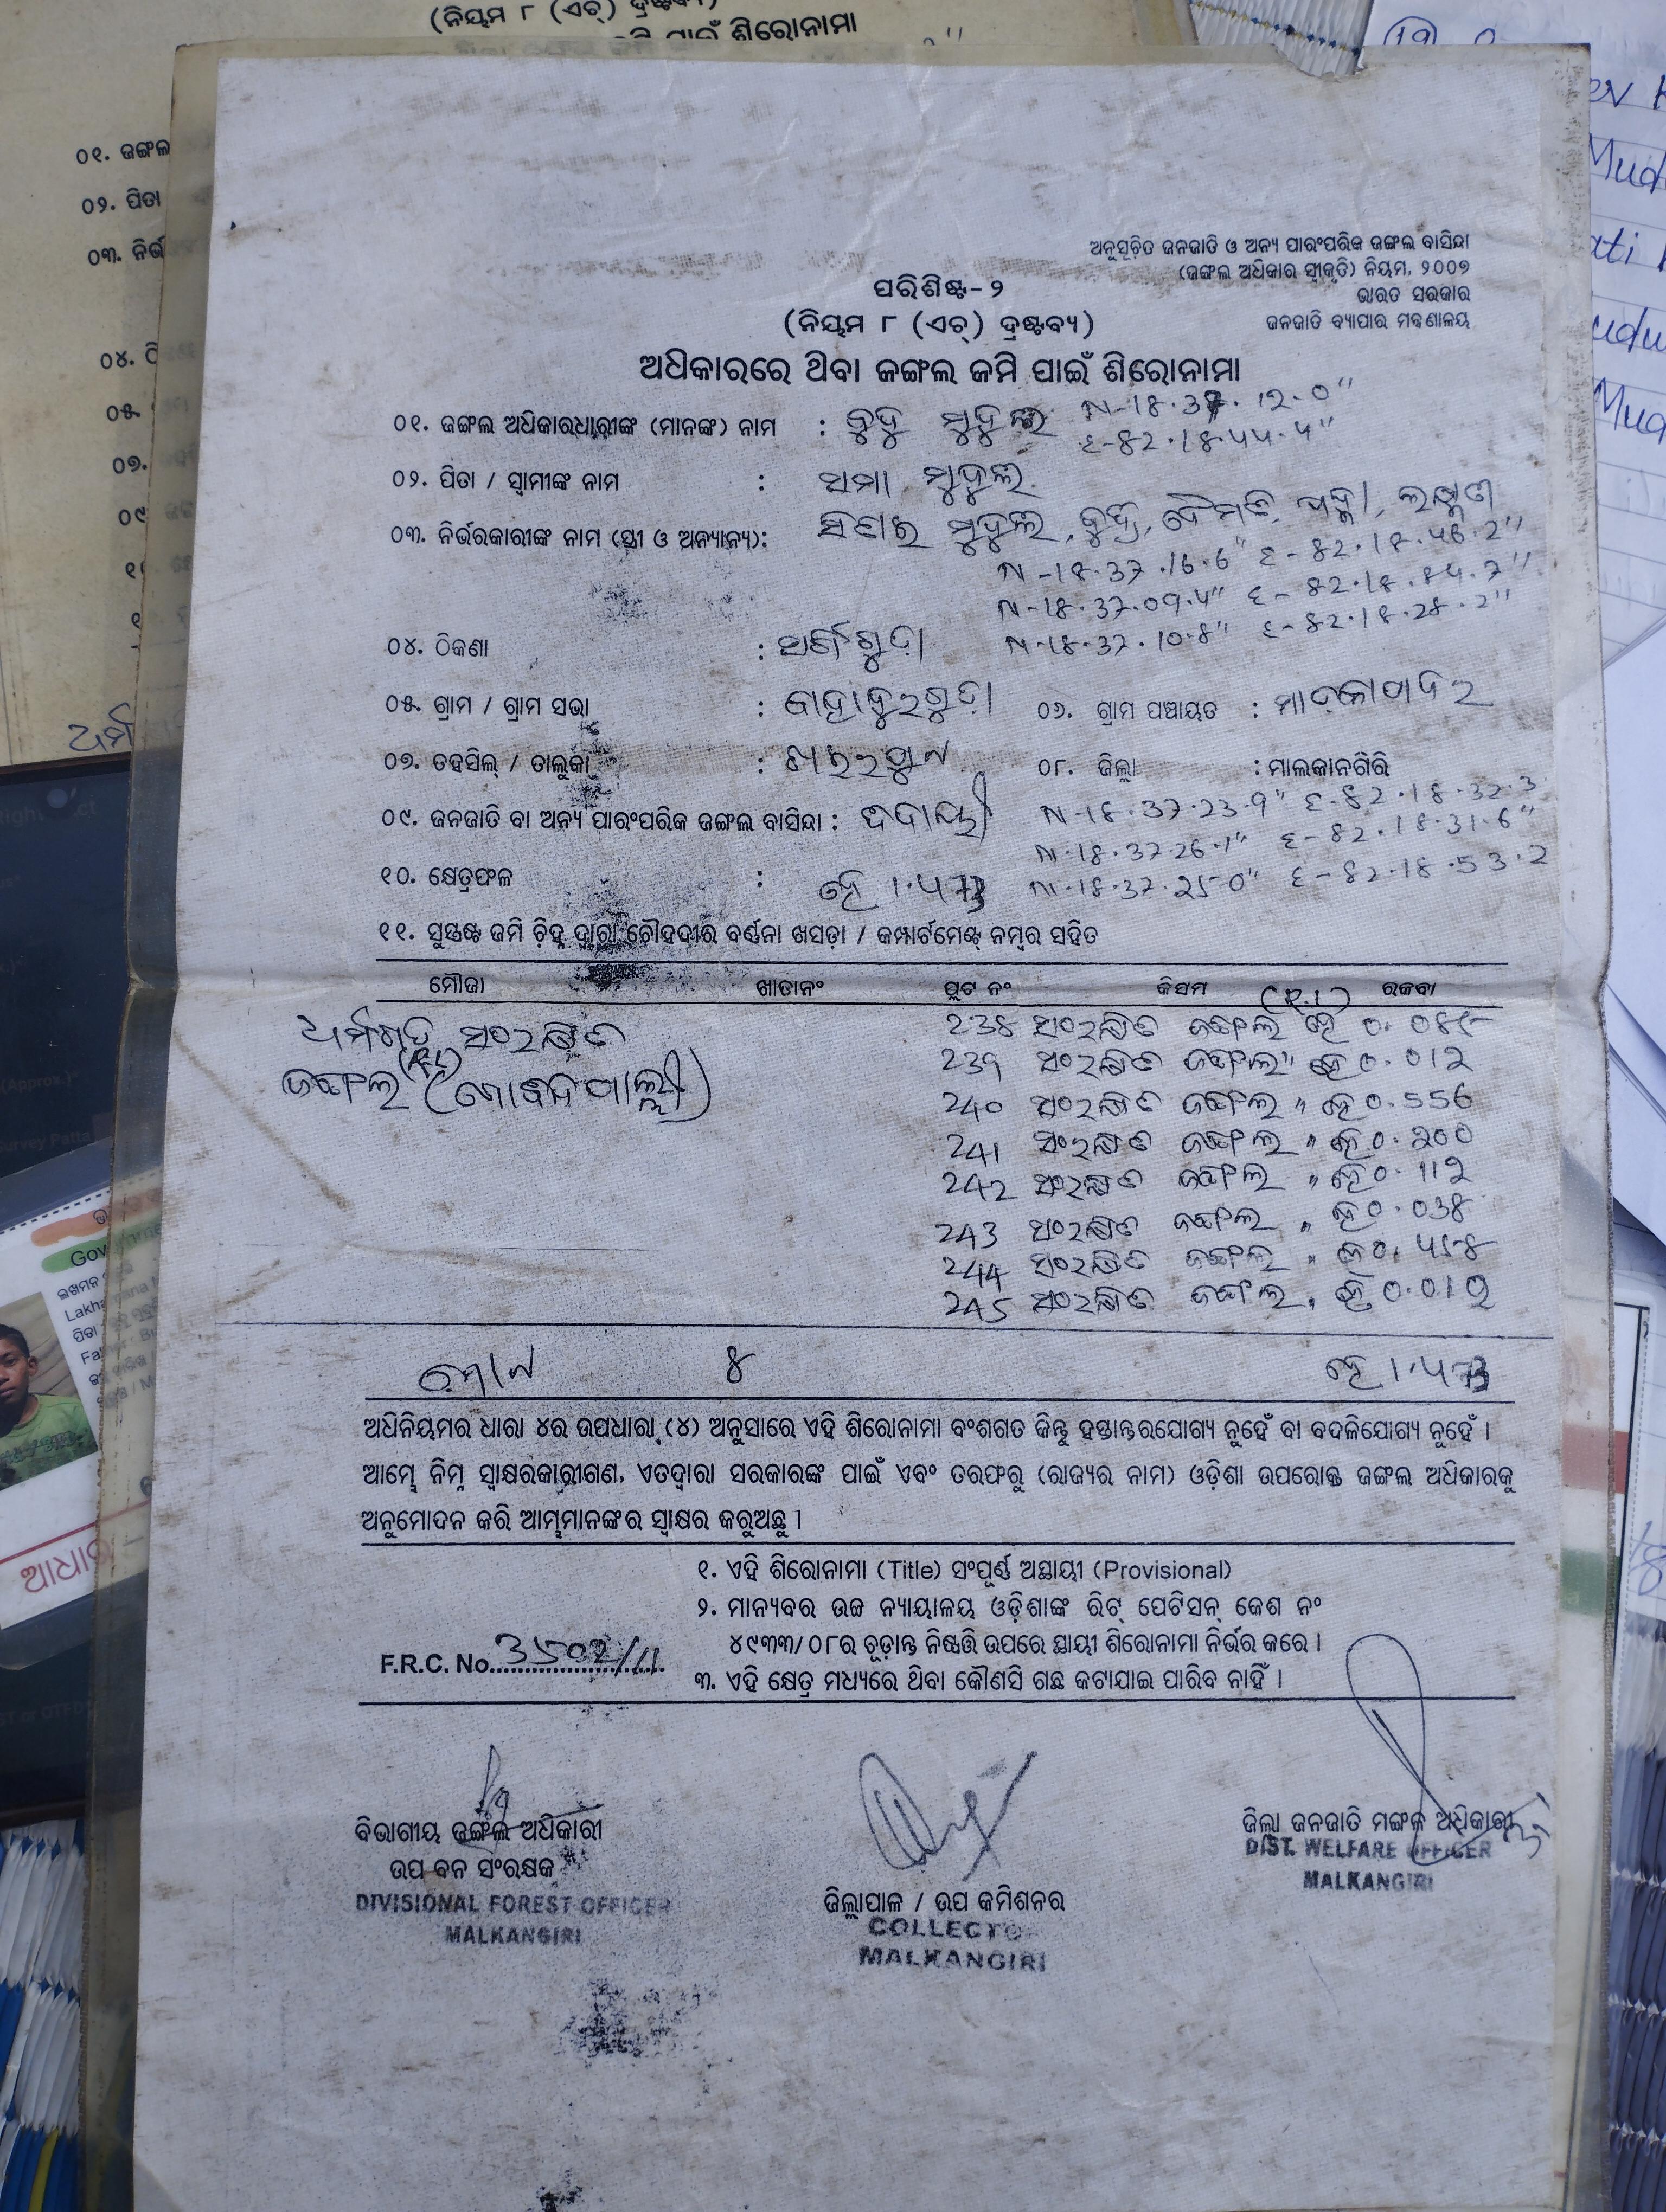 (ନିୟମ ୮ (ଏଚ୍) ଦ୍ରଷ୍ଟବ୍ୟ)
ପାଇଁ ଶିରୋନାମା
୦୧. ଜଙ୍ଗଲ
୦୨. ପିତା
୦୩. ନିର୍ଭ
୦୪. ଠି
୦୫.
୦୭.
୦୯
ଅନୁସୂଚିତ ଜନଜାତି ଓ ଅନ୍ୟ ପାରଂପରିକ ଜଙ୍ଗଲ ବାସିନ୍ଦା
(ଜଙ୍ଗଲ ଅଧିକାର ସ୍ୱୀକୃତି) ନିୟମ, ୨୦୦୭
ଭାରତ ସରକାର
ଜନଜାତି ବ୍ୟାପାର ମନ୍ତ୍ରଣାଳୟ
ପରିଶିଷ୍ଟ-୨
(ନିୟମ ୮ (ଏଚ୍) ଦ୍ରଷ୍ଟବ୍ୟ)
ଅଧିକାରରେ ଥିବା ଜଙ୍ଗଲ ଜମି ପାଇଁ ଶିରୋନାମା
୦୧. ଜଙ୍ଗଲ ଅଧିକାରଧାରୀଙ୍କ (ମାନଙ୍କ) ନାମ : ବୁଦୁ ମୁଦୁଲି N-18.37.12.0"
E-82.18.44.4"
୦୨. ପିତା / ସ୍ୱାମୀଙ୍କ ନାମ : ସମା ମୁଦୁଲି
୦୩. ନିର୍ଭରକାରୀଙ୍କ ନାମ (ସ୍ତ୍ରୀ ଓ ଅନ୍ୟାନ୍ୟ): ମୁଦୁଲି, ବୁଦ୍ରା, ଲକ୍ଷ୍ମଣ
N-18.37.16.6" E-82.18.46.2"
N-18.37.09.4" E-82.18.84.7"
N-18.37.10.8" E-82.18.28.2"
୦୪. ଠିକଣା :
୦୫. ଗ୍ରାମ / ଗ୍ରାମ ସଭା : ବାହାଦୁରଗୁଡ଼ା ୦୬. ଗ୍ରାମ ପଞ୍ଚାୟତ :
୦୭. ତହସିଲ୍ / ତାଲୁକା : ଖଇରପୁଟ ୦୮. ଜିଲ୍ଲା : ମାଲକାନଗିରି
୦୯. ଜନଜାତି ବା ଅନ୍ୟ ପାରଂପରିକ ଜଙ୍ଗଲ ବାସିନ୍ଦା : N-18.37.23.9" E-82.18.32.3
N-18.37.26.1" E-82.18.31.6"
୧୦. କ୍ଷେତ୍ରଫଳ : ହେ 1.473 N-18.37.25.0" E-82.18.53.2
୧୧. ସୁସ୍ପଷ୍ଟ ଜମି ଚିହ୍ନ ଦ୍ୱାରା ଚୌହଦୀର ବର୍ଣ୍ଣନା ଖସଡ଼ା / କମ୍ପାର୍ଟମେଣ୍ଟ୍ ନମ୍ବର ସହିତ
ମୌଜା ଖାତାନଂ ପ୍ଲଟ ନଂ କିସମ ରକବା
ସଂରକ୍ଷିତ 238 ସଂରକ୍ଷିତ ଜଙ୍ଗଲ ହେ 0.
ଜଙ୍ଗଲ 239 ସଂରକ୍ଷିତ ଜଙ୍ଗଲ " ହେ 0.012
240 ସଂରକ୍ଷିତ ଜଙ୍ଗଲ " ହେ 0.556
241 ସଂରକ୍ଷିତ ଜଙ୍ଗଲ " ହେ 0.200
242 ସଂରକ୍ଷିତ ଜଙ୍ଗଲ " ହେ 0.112
243 ସଂରକ୍ଷିତ ଜଙ୍ଗଲ " ହେ 0.038
244 ସଂରକ୍ଷିତ ଜଙ୍ଗଲ " ହେ 0.458
245 ସଂରକ୍ଷିତ ଜଙ୍ଗଲ " ହେ 0.012
ମୋଟ ୪ ହେ 1.473
ଅଧିନିୟମର ଧାରା ୪ର ଉପଧାରା (୪) ଅନୁସାରେ ଏହି ଶିରୋନାମା ବଂଶଗତ କିନ୍ତୁ ହସ୍ତାନ୍ତରଯୋଗ୍ୟ ନୁହେଁ ବା ବଦଳିଯୋଗ୍ୟ ନୁହେଁ ।
ଆମ୍ଭେ ନିମ୍ନ ସ୍ୱାକ୍ଷରକାରୀଗଣ, ଏତଦ୍ୱାରା ସରକାରଙ୍କ ପାଇଁ ଏବଂ ତରଫରୁ (ରାଜ୍ୟର ନାମ) ଓଡ଼ିଶା ଉପରୋକ୍ତ ଜଙ୍ଗଲ ଅଧିକାରକୁ
ଅନୁମୋଦନ କରି ଆମ୍ଭମାନଙ୍କର ସ୍ୱାକ୍ଷର କରୁଅଛୁ ।
୧. ଏହି ଶିରୋନାମା (Title) ସଂପୂର୍ଣ୍ଣ ଅସ୍ଥାୟୀ (Provisional)
୨. ମାନ୍ୟବର ଉଚ୍ଚ ନ୍ୟାୟାଳୟ ଓଡ଼ିଶାଙ୍କ ରିଟ୍ ପେଟିସନ୍ କେଶ ନଂ
୪୯୩୩/୦୮ର ଚୂଡ଼ାନ୍ତ ନିଷ୍ପତ୍ତି ଉପରେ ସ୍ଥାୟୀ ଶିରୋନାମା ନିର୍ଭର କରେ ।
F.R.C. No. 3502/11
୩. ଏହି କ୍ଷେତ୍ର ମଧ୍ୟରେ ଥିବା କୌଣସି ଗଛ କଟାଯାଇ ପାରିବ ନାହିଁ ।
ବିଭାଗୀୟ ଜଙ୍ଗଲ ଅଧିକାରୀ
ଉପ ବନ ସଂରକ୍ଷକ
DIVISIONAL FOREST OFFICER
MALKANGIRI
ଜିଲ୍ଲାପାଳ / ଉପ କମିଶନର
COLLECTO
MALKANGIRI
ଜିଲ୍ଲା ଜନଜାତି ମଙ୍ଗଳ ଅଧିକାରୀ
DIST. WELFARE OFFICER
MALKANGIRI